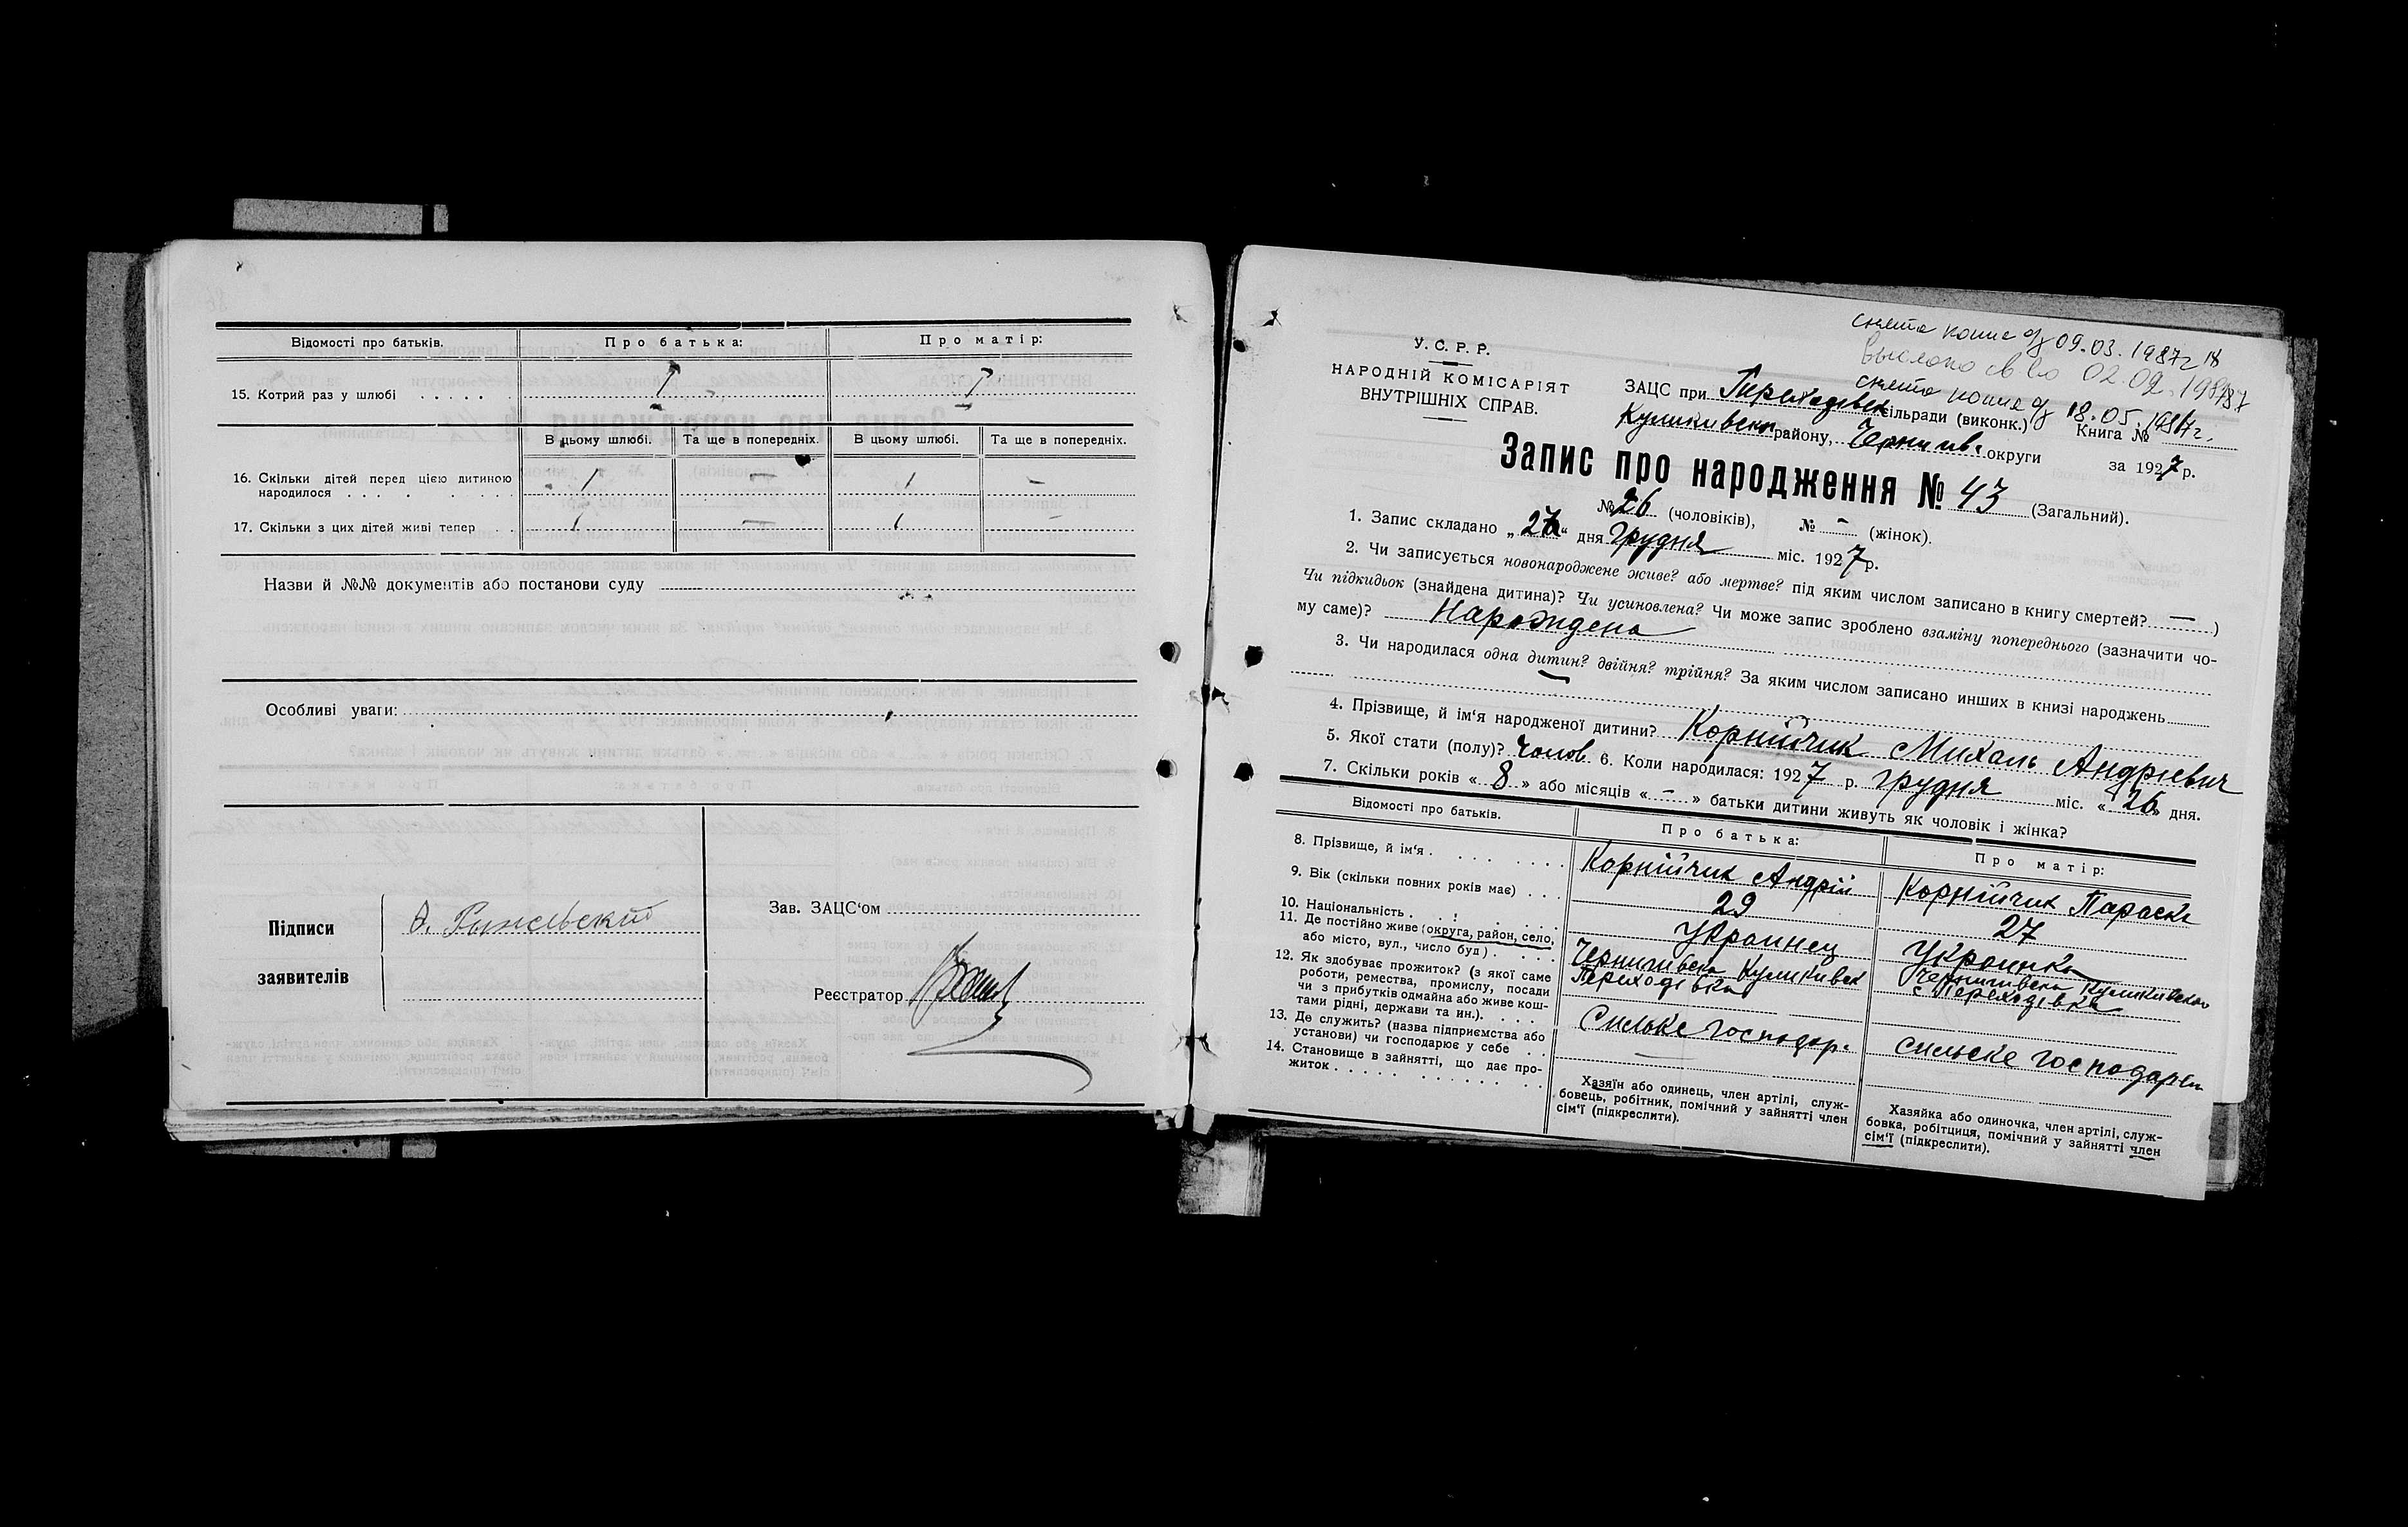 Відомості про батьків. Про батька: Про матір:
15. Котрий раз у шлюбі . . . . . 1 1
В цьому шлюбі. Та ще в попередніх. В цьому шлюбі. Та ще в попередніх.
16. Скільки дітей перед цією дитиною
народилося . . . . . . . . 1 — 1 —
17. Скільки з цих дітей живі тепер . . 1 — 1 —
Назви й №№ документів або постанови суду
Особливі уваги:
Підписи
заявителів
Зав. ЗАЦС‘ом
Реєстратор
снята копия 09.03.1987г
02.09.1987
снята копия 18.05.1987г.
У. С. Р. Р.
НАРОДНІЙ КОМІСАРІЯТ
ВНУТРІШНІХ СПРАВ.
ЗАЦС при Переходівськ сільради (виконк.)
Куликивськ району, Черниив. округи
Книга №
за 1927 р.
Запис про народження № 43 (Загальний).
№ 26 (чоловіків), № - (жінок).
1. Запис складано „ “ дня грудня міс. 1927 р.
2. Чи записується новонароджене живе? або мертве? під яким числом записано в книгу смертей? — )
Чи підкидьок (знайдена дитина)? Чи усиновлена? Чи може запис зроблено взаміну попереднього (зазначити чо-
му саме)? Нарождена
3. Чи народилася одна дитин? двійня? трійня? За яким числом записано инших в книзі народжень
4. Прізвище, й ім‘я народженої дитини? Корнійчик Михаль Андрієвич
5. Якої стати (полу)? Чолов. 6. Коли народилася: 1927 р. грудня міс. « 26 » дня.
7. Скільки років « 8 » або місяців « - » батьки дитини живуть як чоловік і жінка?
Відомості про батьків. Про батька: Про матір:
8. Прізвище, й ім‘я . . . . . . . . Корнійчик Андрій Корнійчик Параска
9. Вік (скільки повних років має) . . . 29 27
10. Національність . . . . . . . Украинец Украинка
11. Де постійно живе (округа, район, село,
або місто, вул., число буд) . . . . .
Чернигивска Куликивск Переходівка
Чернигивска Куликивского с Переходівка
12. Як здобуває прожиток? (з якої саме
роботи, ремества, промислу, посади
чи з прибутків одмайна або живе кош-
тами рідні, держави та ин.). . . . .
Сильке господар. сильске господарсн
13. Де служить? (назва підприємства або
установи) чи господарює у себе . . —
14. Становище в зайнятті, що дає про-
житок . . . . . . . . . . . .
Хазяїн або одинець, член артілі, служ-
бовець, робітник, помічний у зайнятті член
сім‘ї (підкреслити).
Хазяйка або одиночка, член артілі, служ-
бовка, робітциця, помічний у зайнятті член
сім‘ї (підкреслити).